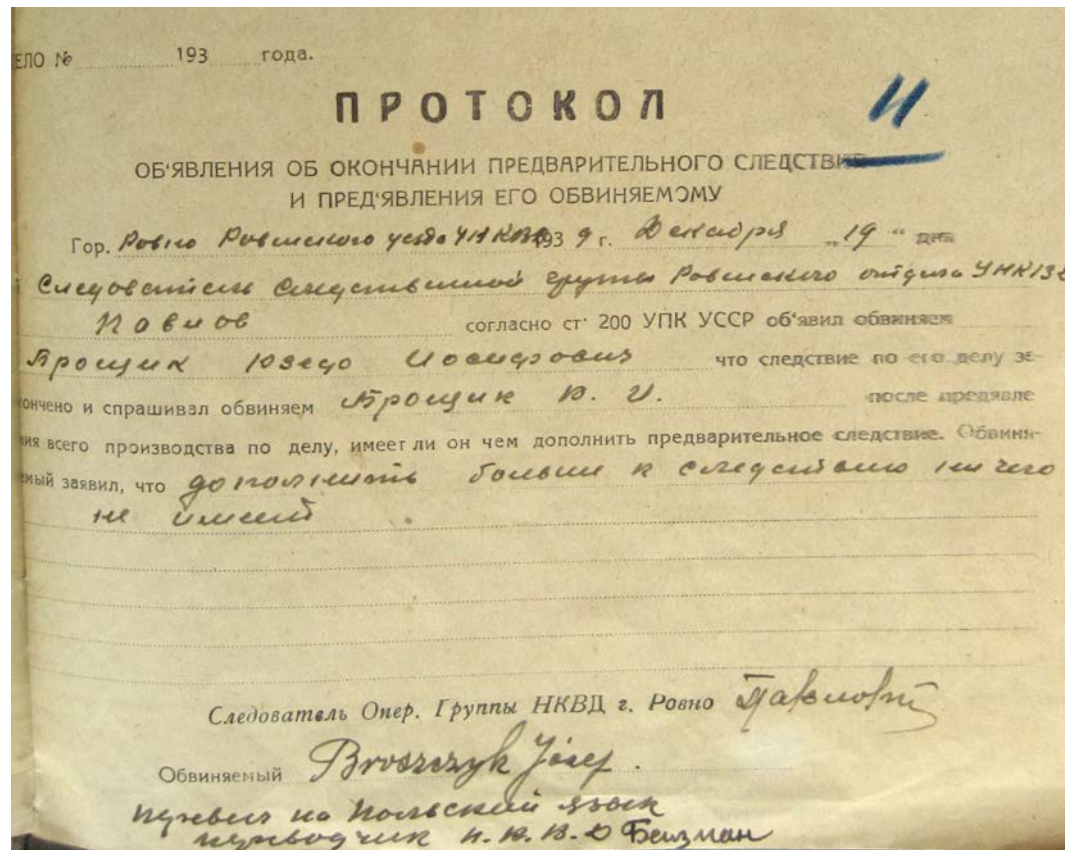 ЕЛО № 193 года.
ПРОТОКОЛ
11
ОБ'ЯВЛЕНИЯ ОБ ОКОНЧАНИИ ПРЕДВАРИТЕЛЬНОГО СЛЕДСТВИЯ
И ПРЕД'ЯВЛЕНИЯ ЕГО ОБВИНЯЕМОМУ
Гор. Ровно Ровенского уезда УНКВД 193 9 г. Декабря „19“ дня
Следователь Следственной группы Ровенского отдела УНКВД
Павлов согласно ст· 200 УПК УССР об'явил обвиняем
Брощик Юзефо Иосифович что следствие по его делу за-
кончено и спрашивал обвиняем Брощик В. И. после предявле
ния всего производства по делу, имеет ли он чем дополнить предварительное следствие. Обвиня-
емый заявил, что дополнить больше к следствию ни чего
не имеет
Следователь Опер. Группы НКВД г. Ровно
Обвиняемый Broszczyk Józef.
на Польский язык
переводчик Н.К.В.Д